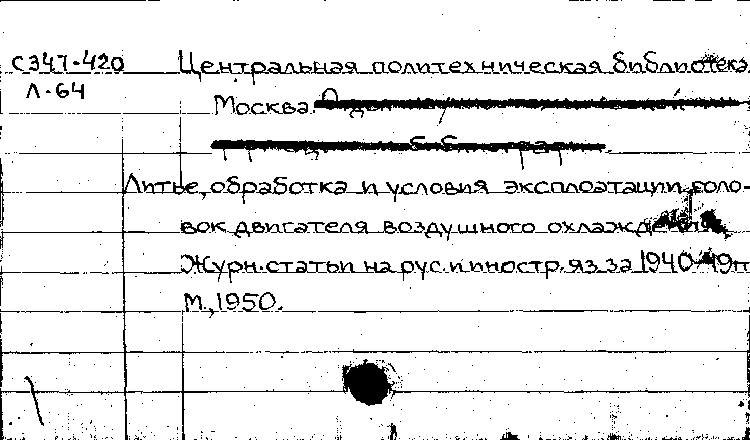 С347-420 Центральная политехническая библиотека
Л-64 Москва.
Литье, обработка и условия эксплоатации голо-
вок двигателя воздушного охлаждения.
Журн. статьи на рус. и иностр. яз. за 1940-49гг
М., 1950.